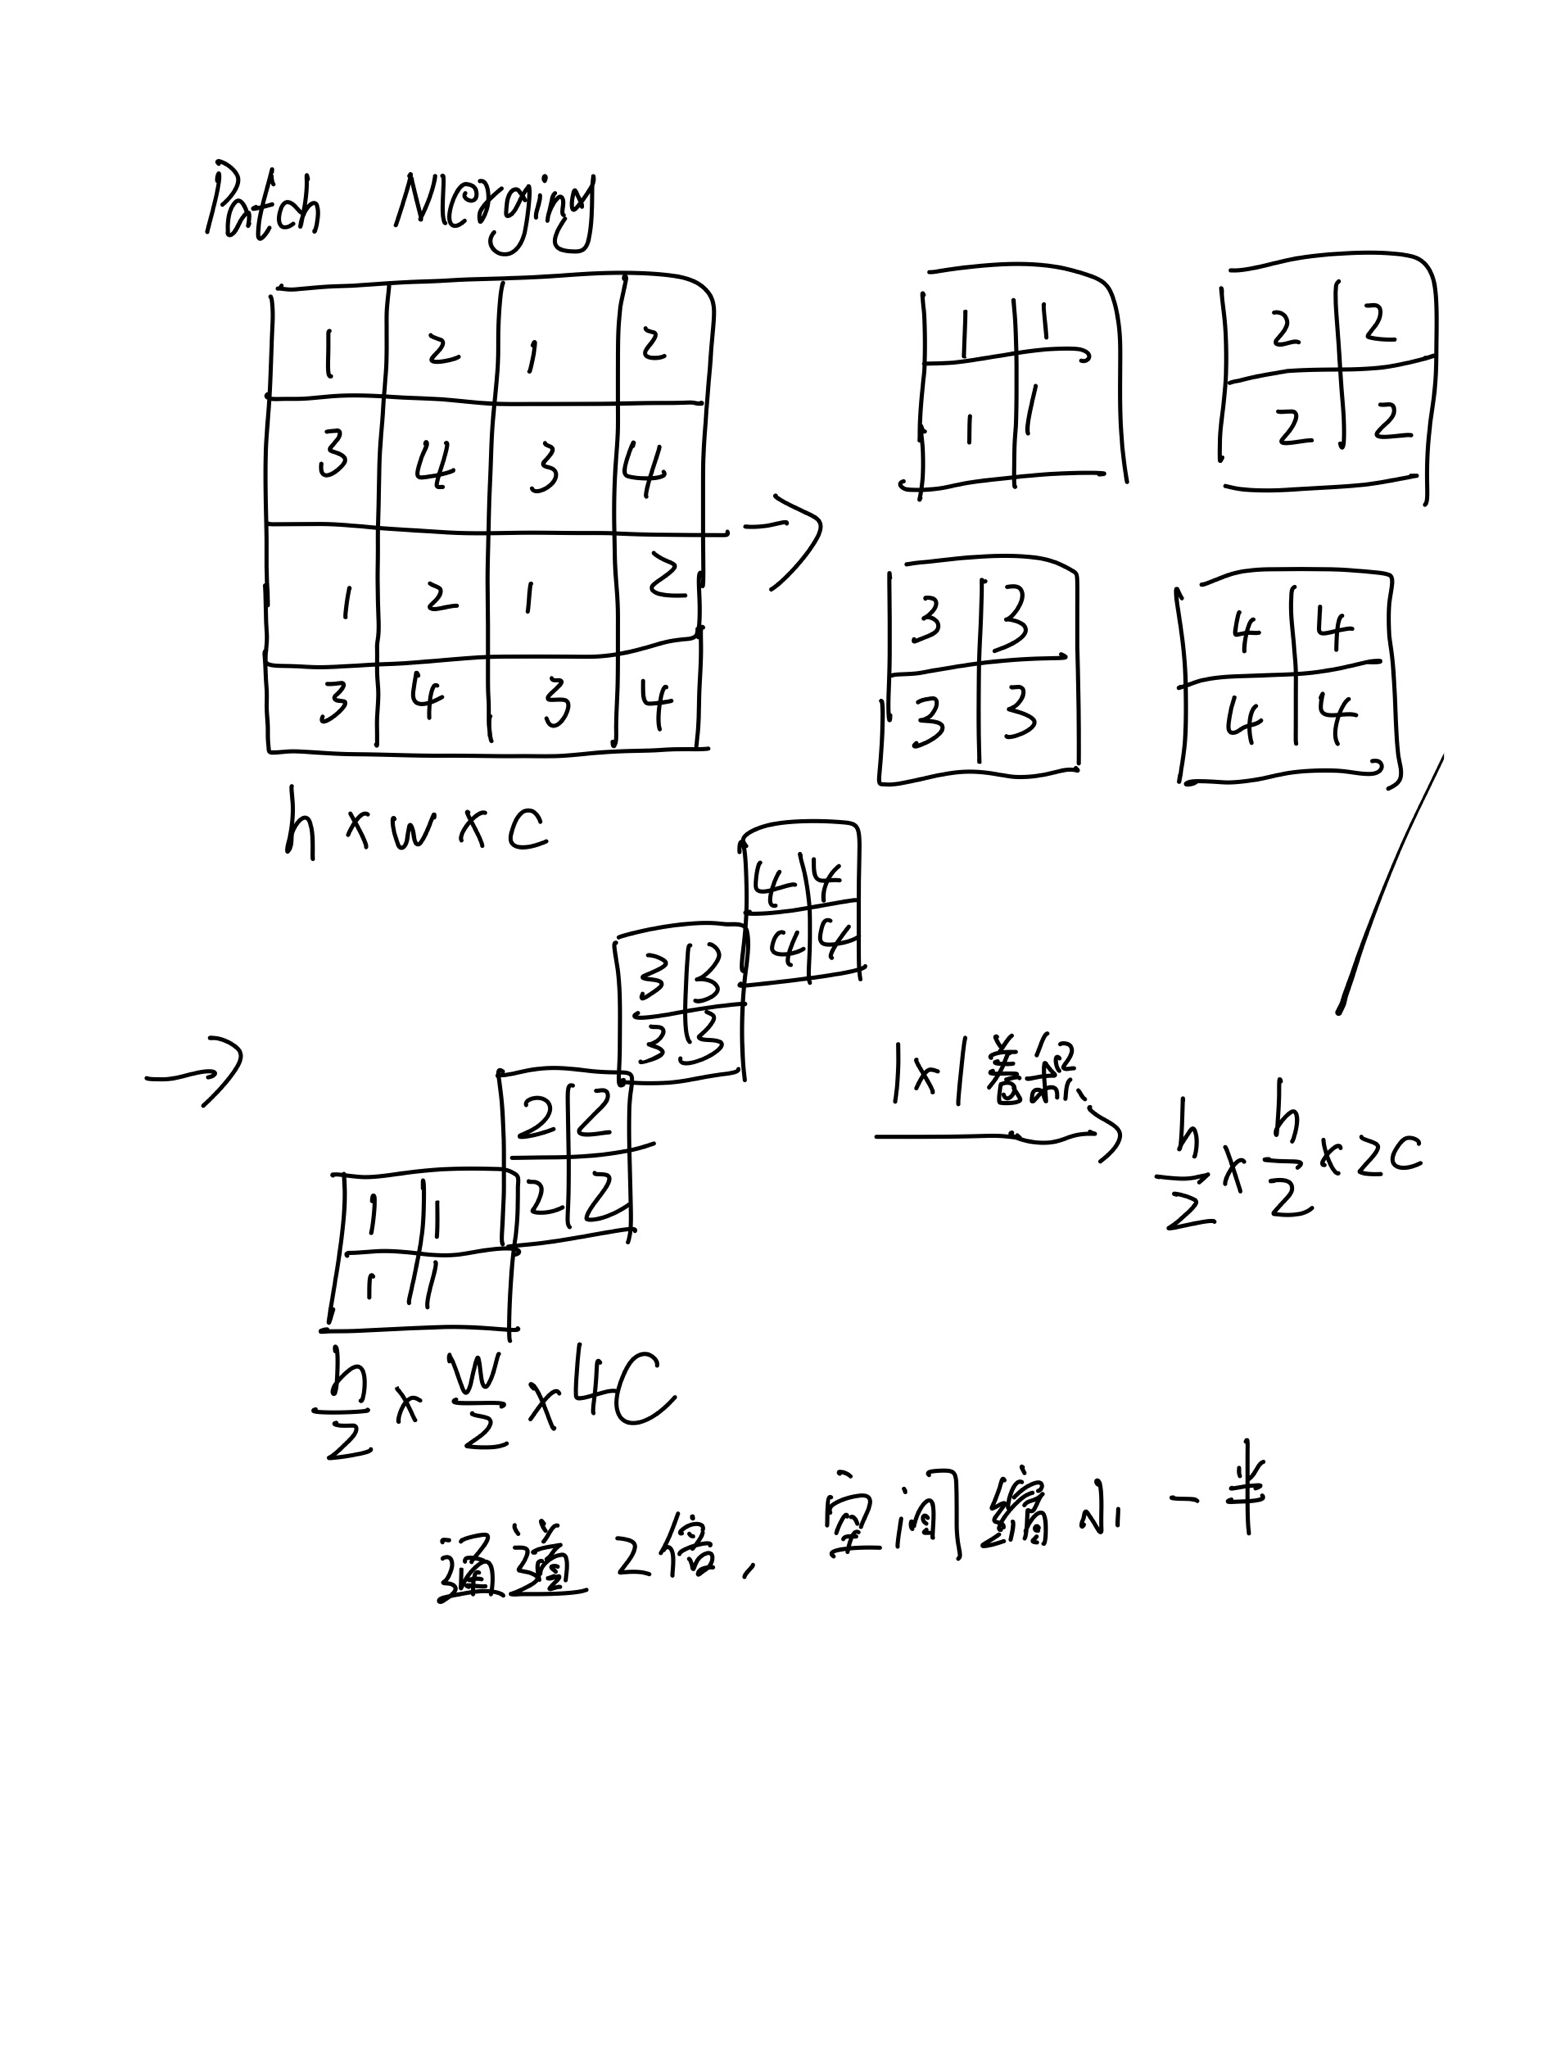 Patch Merging
1 2 1 2
3 4 3 4
1 2 1 2
3 4 3 4
h×w×C
1 1
1 1
2 2
2 2
3 3
3 3
4 4
4 4
4 4
4 4
3 3
3 3
2 2
2 2
1 1
1 1
h/2 × w/2 × 4C
1×1卷积
h/2 × h/2 × 2C
通道2倍, 空间缩小一半